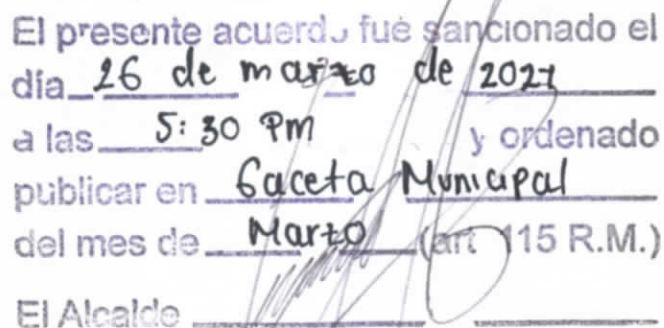 El presente acuerdo fue sancionado el
día 26 de marzo de 2021
a las 5:30 Pm y ordenado
publicar en Gaceta Municipal
del mes de Marzo (art 115 R.M.)
El Alcalde